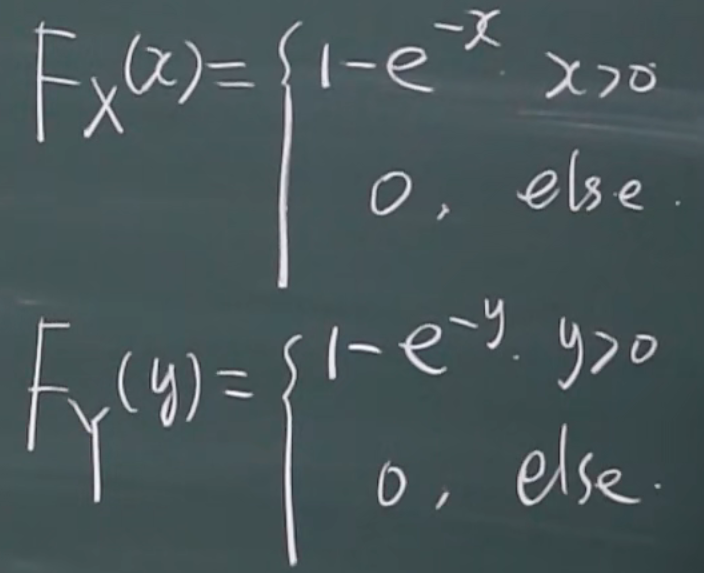 F_X(x) = { 1 - e^{-x}. x>0
0, else.
F_Y(y) = { 1 - e^{-y}. y>0
0, else.